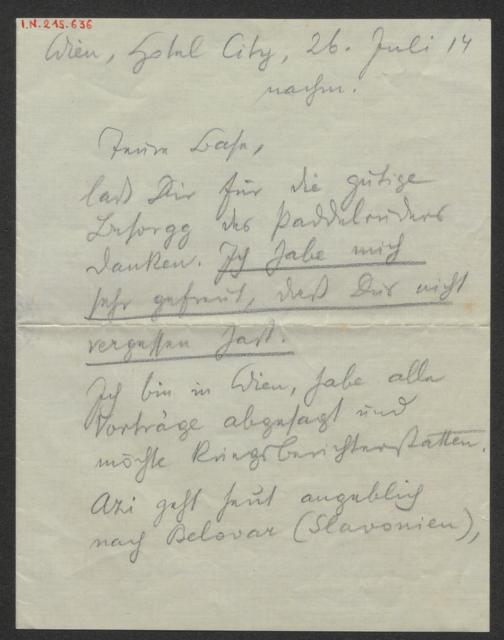 I.N. 215.636
Wien, Hotel City, 26. Juli 14
nachm.
Teure Base,
laß Dir für die gütige
Besorgg des Paddelruders
danken. Ich habe mich
sehr gefreut, daß Du's nicht
vergessen hast.
Ich bin in Wien, habe alle
Vorträge abgesagt und
möchte Kriegsberichterstatten.
Azi geht heut angeblich
nach Belovar (Slavonien),